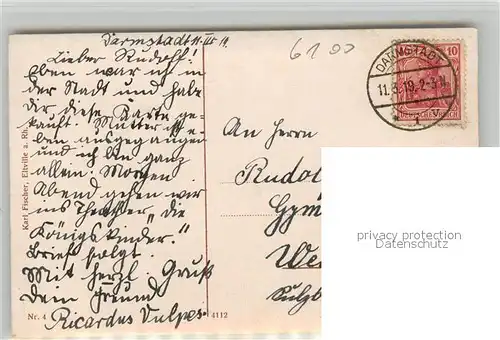 Darmstadt 11.III.19.
Lieber Rudolf!
Eben war ich in
der Stadt und habe
dir diese Karte ge-
kauft. Mutter ist
eben ausgegangen
und ich bin ganz
allein. Morgen
Abend gehen wir
ins Theater „die
Königskinder."
Brief folgt.
Mit herzl. Gruß
dein Freund
Ricardus Vulpes.
Karl Fischer, Eltville a. Rh.
Nr. 4
4112
6100
DARMSTADT
11.3.19. 2-3 N.
1
10
An Herrn
Rudol
Gym
We
Sulzb
privacy protection
Datenschutz